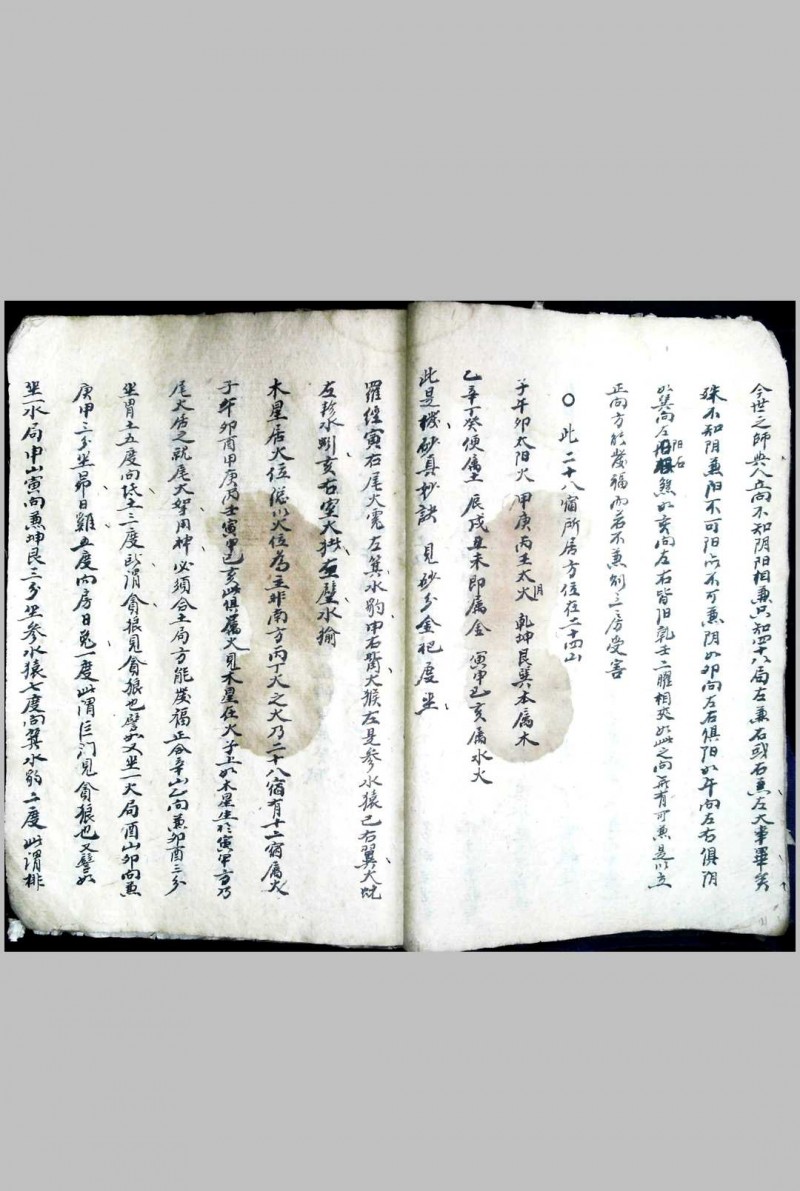 今世之師與人立向不知阴阳相兼只知四十八局左兼右或右兼左大事畢矣
殊不知阴兼阳不可阳亦不可兼阴如卯向左右俱阳如午向左右俱阴
如巽向左阳右阴 如亥向左右皆阳乾壬二曜相夹如此之向無有可兼是以立
正向方能發福而若不兼則三房受害
〇此二十八宿所居方位在二十四山
子午卯太阳火 甲庚丙壬太阴火 乾坤艮巽本属木
乙辛丁癸便属土 辰戌丑未即属金 寅申巳亥属水火
此是撥砂真妙訣 見砂分金祀度坐
羅經寅右尾火虎左箕水豹申右觜火猴左是参水猿巳右翼火蛇
左軫水蚓亥右室火猪左壁水㺄
木星居火位總以火位為主非南方丙丁火之火乃二十八宿有十二宿属火
子午卯酉甲庚丙壬寅申巳亥此俱属火見木星在火子上如木星坐於寅甲方乃
尾火居之就尾火架用神必須合土局方能發福正合辛山乙向兼卯酉三分
坐胃土五度向氐土三度此謂貪狼見貪狼也譬如又坐一火局酉山卯向兼
庚甲三分坐昴日雞五度向房日兔一度此謂巨门見貪狼也又譬如
坐一水局申山寅向兼坤艮三分坐参水猿七度向箕水豹二度此謂排